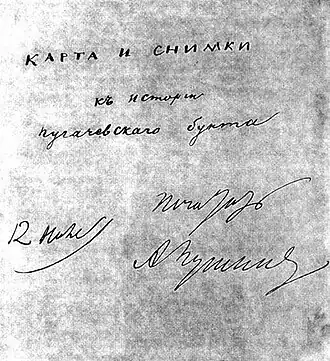 КАРТА И СНИМКИ
къ исторіи
пугачевскаго бунта
печатать
12 нояб
А Пушкинъ